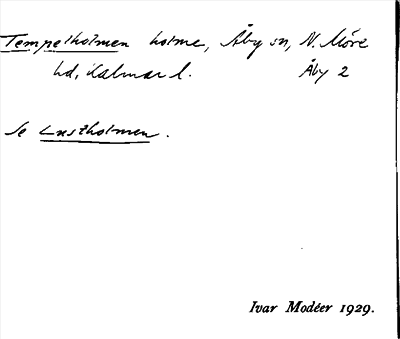 Tempelholmen holme, Åby sn, N. Möre
hd, Kalmar l.
Åby 2
Se Lustholmen.
Ivar Modéer 1929.